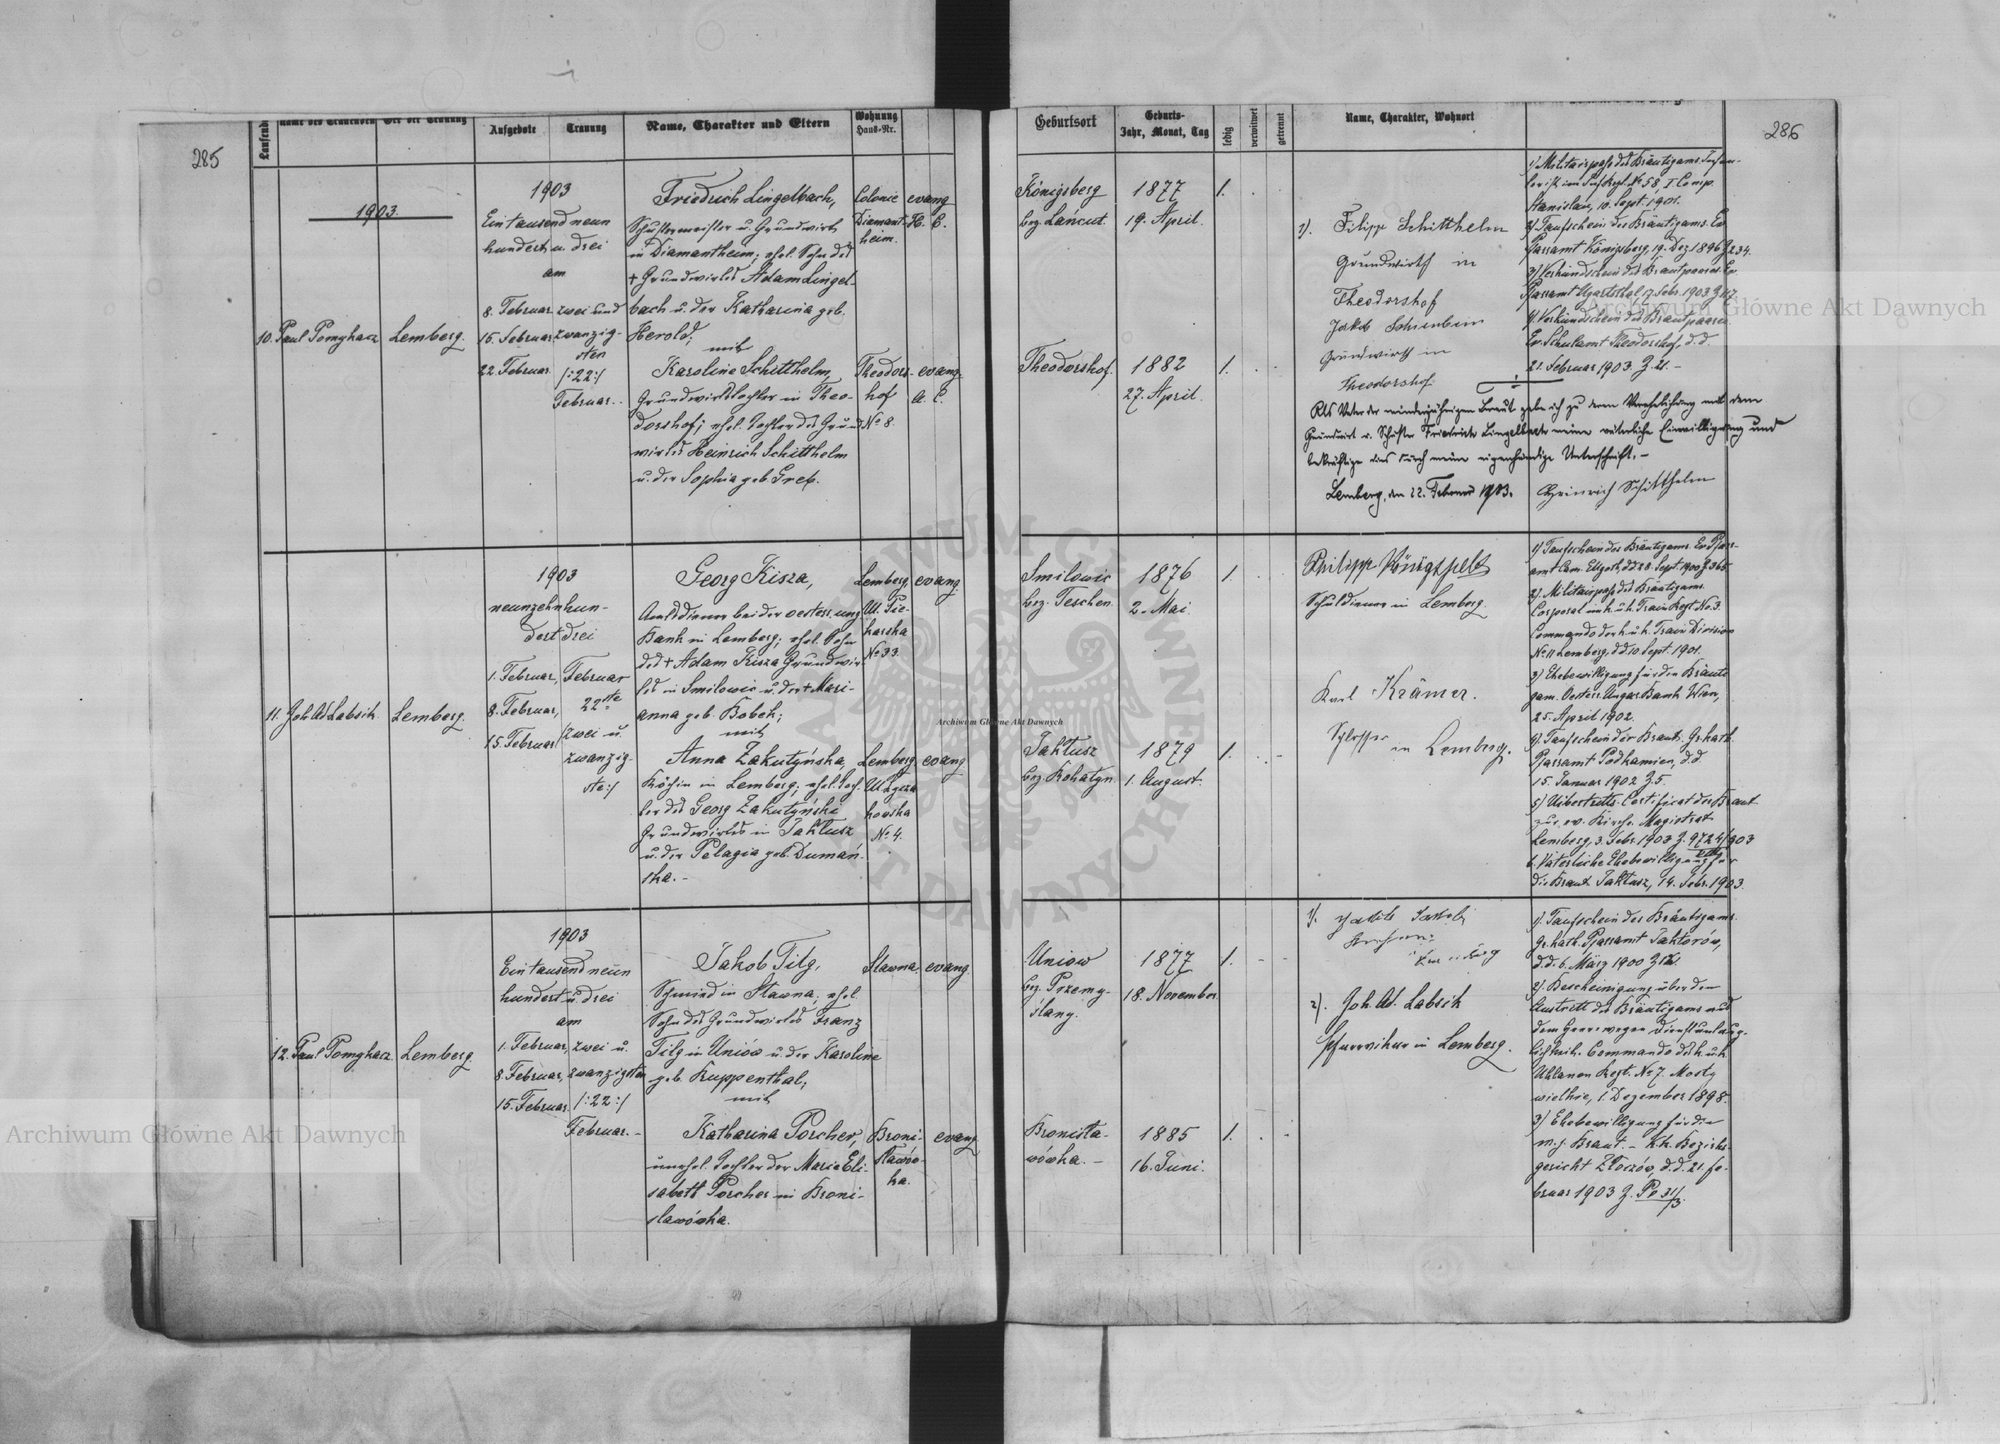 285
Laufende
Name des Trauenden
Ort der Trauung
Aufgebote
Trauung
Name, Charakter und Eltern
Wohnung
Haus-Nr.
1903.
10. Paul Pomykacz
Lemberg.
1903
Eintausend neun
hundert u. drei
am
8. Februar
15. Februar
22. Februar
zwei und
zwanzig-
sten
/:22:/
Februar.
Friedrich Lingelbach,
Schustermeister u. Grundwirth
in Diamantheim; ehel. Sohn des
+ Grundwirtes Adam Lingel-
bach u. der Katharina geb.
Herold;
mit
Karoline Schitthelm,
Grundwirthtochter in Theo-
dorshof; ehel. Tochter des Grund
wirtes Heinrich Schitthelm
u. der Sophia geb.
Colonie
Diamant-
heim.
evang
H. C.
Theodors-
hof
No 8.
evang.
A. C.
11. Joh. Ad. Labsik
Lemberg.
1903
neunzehnhun-
dert drei
1. Februar,
8. Februar,
15. Februar
Februar
22ste
/zwei u.
zwanzig-
ste:/
Georg Kisza,
Amtsdiener bei der oesterr. ung
Bank in Lemberg; ehel. Sohn
des + Adam Kisza Grundwir-
tes in Smilowic u. der + Mari-
anna geb. Bobek;
mit
Anna Zakutyńska,
Köchin in Lemberg; ehel. Toch-
ter des Georg Zakutyński
Grundwirtes in Jaktusz
u. der Pelagia geb. Dumań-
ska. -
Lemberg,
Ul. Pie-
karska
No 33.
evang.
Lemberg
Ul. Łycza
kowska
No 4.
evang
12. Paul Pomykacz
Lemberg.
1903
Ein tausend neun
hundert u. drei
am
1. Februar,
8. Februar,
15. Februar.
zwei u.
zwanzigsten
/:22:/
Februar. -
Jakob Tilg,
Schmied in Sławna; ehel.
Sohn des Grundwirtes Franz
Tilg in Uniów u. der Karoline
geb. Kuppenthal;
mit
Katharina Porcher,
unehel. Tochter der Maria Eli-
sabeth Porcher in Broni-
sławówka.
Sławna
evang.
Broni-
sławów-
ka.
evang
Geburtsort
Geburts-
Jahr, Monat, Tag
ledig
verwitwet
getrennt
Name, Charakter, Wohnort
286
Königsberg
bez. Łańcut.
1877
19. April.
1.
Theodorshof.
1882
27. April.
1.
1). Filipp Schitthelm
Grundwirth in
Theodorshof
Jakob
Grundwirth in
Theodorshof
1) Militairpass des Bräutigams Infan-
terist im Inf. Regt. No 58, I. Comp.
Stanislau, 10. Sept. 1901.
2) Taufschein des Bräutigams. Ev.
Pfarramt Königsberg, 19. Dez. 1896 Z 234.
3) Verkündschein des Brautpaares. Ev.
Pfarramt Ugartsthal 17. Febr. 1903 Z 117.
4) Verkündschein des Brautpaares
Ev. Schulamt Theodorshof, d. d.
21. Februar 1903. Z. 21. -
Als Vater der minderjährigen Braut gebe ich zu deren Verehelichung mit dem
Grundwirt u. Schuster Friedrich Lingelbach meine väterliche Einwilligung und
bekräftige dies durch meine eigenhändige Unterschrift. -
Lemberg, den 22. Februar 1903. Heinrich Schitthelm
Smilowic
bez. Teschen.
1876
2. Mai
1.
Jaktusz
bez. Rohatyn
1879
1. August.
1.
Philipp Königsfeld
Schuldiener in Lemberg.
Karl Krämer.
Schlosser in Lemberg.
1) Taufschein des Bräutigams. Ev. Pfarr-
amt Cam. Ellgoth, dd 28. Sept. 1900 Z 365
2) Militairpass des Bräutigams.
Corporal im k. u. k. Train Regt. No 3.
Commando der k. u. k. Train Division
No 11 Lemberg, dd. 10. Sept. 1901.
3) Ehebewilligung für den Bräuti
gam. Oesterr. Ungar. Bank Wien,
25. April 1902.
4) Taufschein der Braut. Gr. kath.
Pfarramt Podkamien, d. d.
15. Januar 1902 Z 5.
5) Uibertritts-Certificat der Braut
zur ev. Kirche. Magistrat
Lemberg, 3. Febr. 1903 Z. 9724/903
6. Väterliche Ehebewilligung für
die Braut Jaktusz, 14. Febr. 1903.
Uniow
bez. Przemy-
ślany.
1877
18. November
1.
Bronisła-
wówka. -
1885
16. Juni.
1.
1). Jakob
2). Joh. Ad. Labsik
Pfarrvikar in Lemberg.
1). Taufschein des Bräutigams
Gr. kath. Pfarramt Jaktorów,
d. d. 6. März 1900
2). Bescheinigung über den
Austritt des Bräutigams aus
dem Heere wegen Dienstuntaug-
lichkeit. Commando des k. u. k.
Uhlanen Regt. No 7. Mosty
wielkie, 1. Dezember 1898.
3) Ehebewilligung für die
m. j. Braut. - Kk. Bezirks-
gericht Złoczów, d. d. 21. Fe-
bruar 1903 Z.
Archiwum Główne Akt Dawnych
Archiwum Główne Akt Dawnych
Archiwum Główne Akt Dawnych
ARCHIWUM GŁÓWNE AKT DAWNYCH